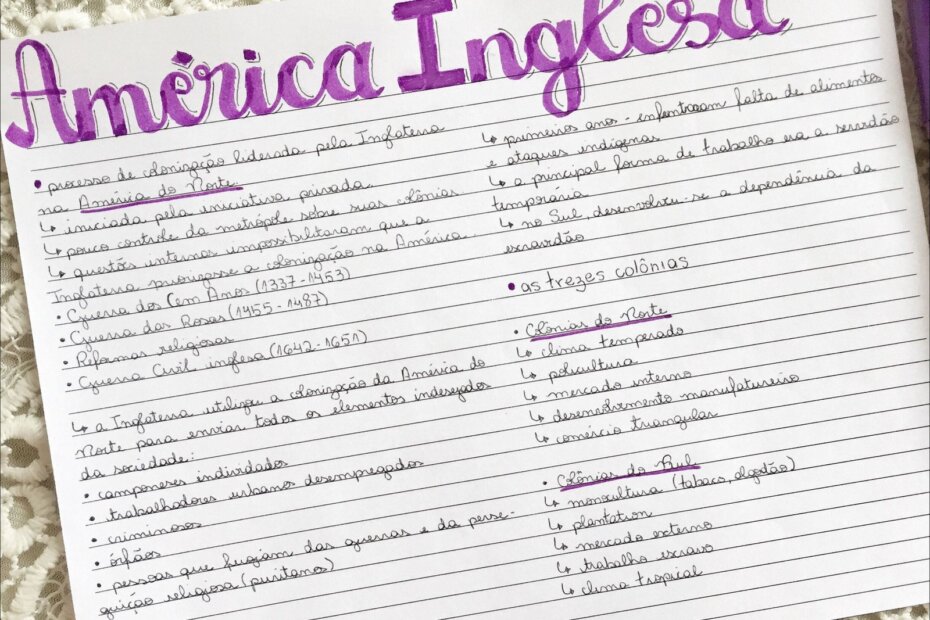 América Inglesa
• processo de colonização liderada pela Inglaterra
na América do Norte.
↳ iniciada pela iniciativa privada
↳ pouco controle da metrópole sobre suas colônias
↳ questões internas impossibilitaram que a
Inglaterra priorizasse a colonização na América
• Guerra dos Cem Anos (1337-1453)
• Guerra das Rosas (1455-1487)
• Reformas religiosas
• Guerra Civil inglesa (1642-1651)
↳ a Inglaterra utilizou a colonização da América do
Norte para enviar todos os elementos indesejados
da sociedade:
• camponeses endividados
• trabalhadores urbanos desempregados
• criminosos
• órfãos
• pessoas que fugiam das guerras e da perse-
guição religiosa (puritanos)
↳ primeiros anos - enfrentaram falta de alimentos
e ataques indígenas
↳ a principal forma de trabalho era a servidão
temporária
↳ no Sul desenvolveu-se a dependência da
escravidão
• as trezes colônias
• Colônias do Norte
↳ clima temperado
↳ policultura
↳ mercado interno
↳ desenvolvimento manufatureiro
↳ comércio triangular
• Colônias do Sul
↳ monocultura (tabaco, algodão)
↳ plantation
↳ mercado externo
↳ trabalho escravo
↳ clima tropical